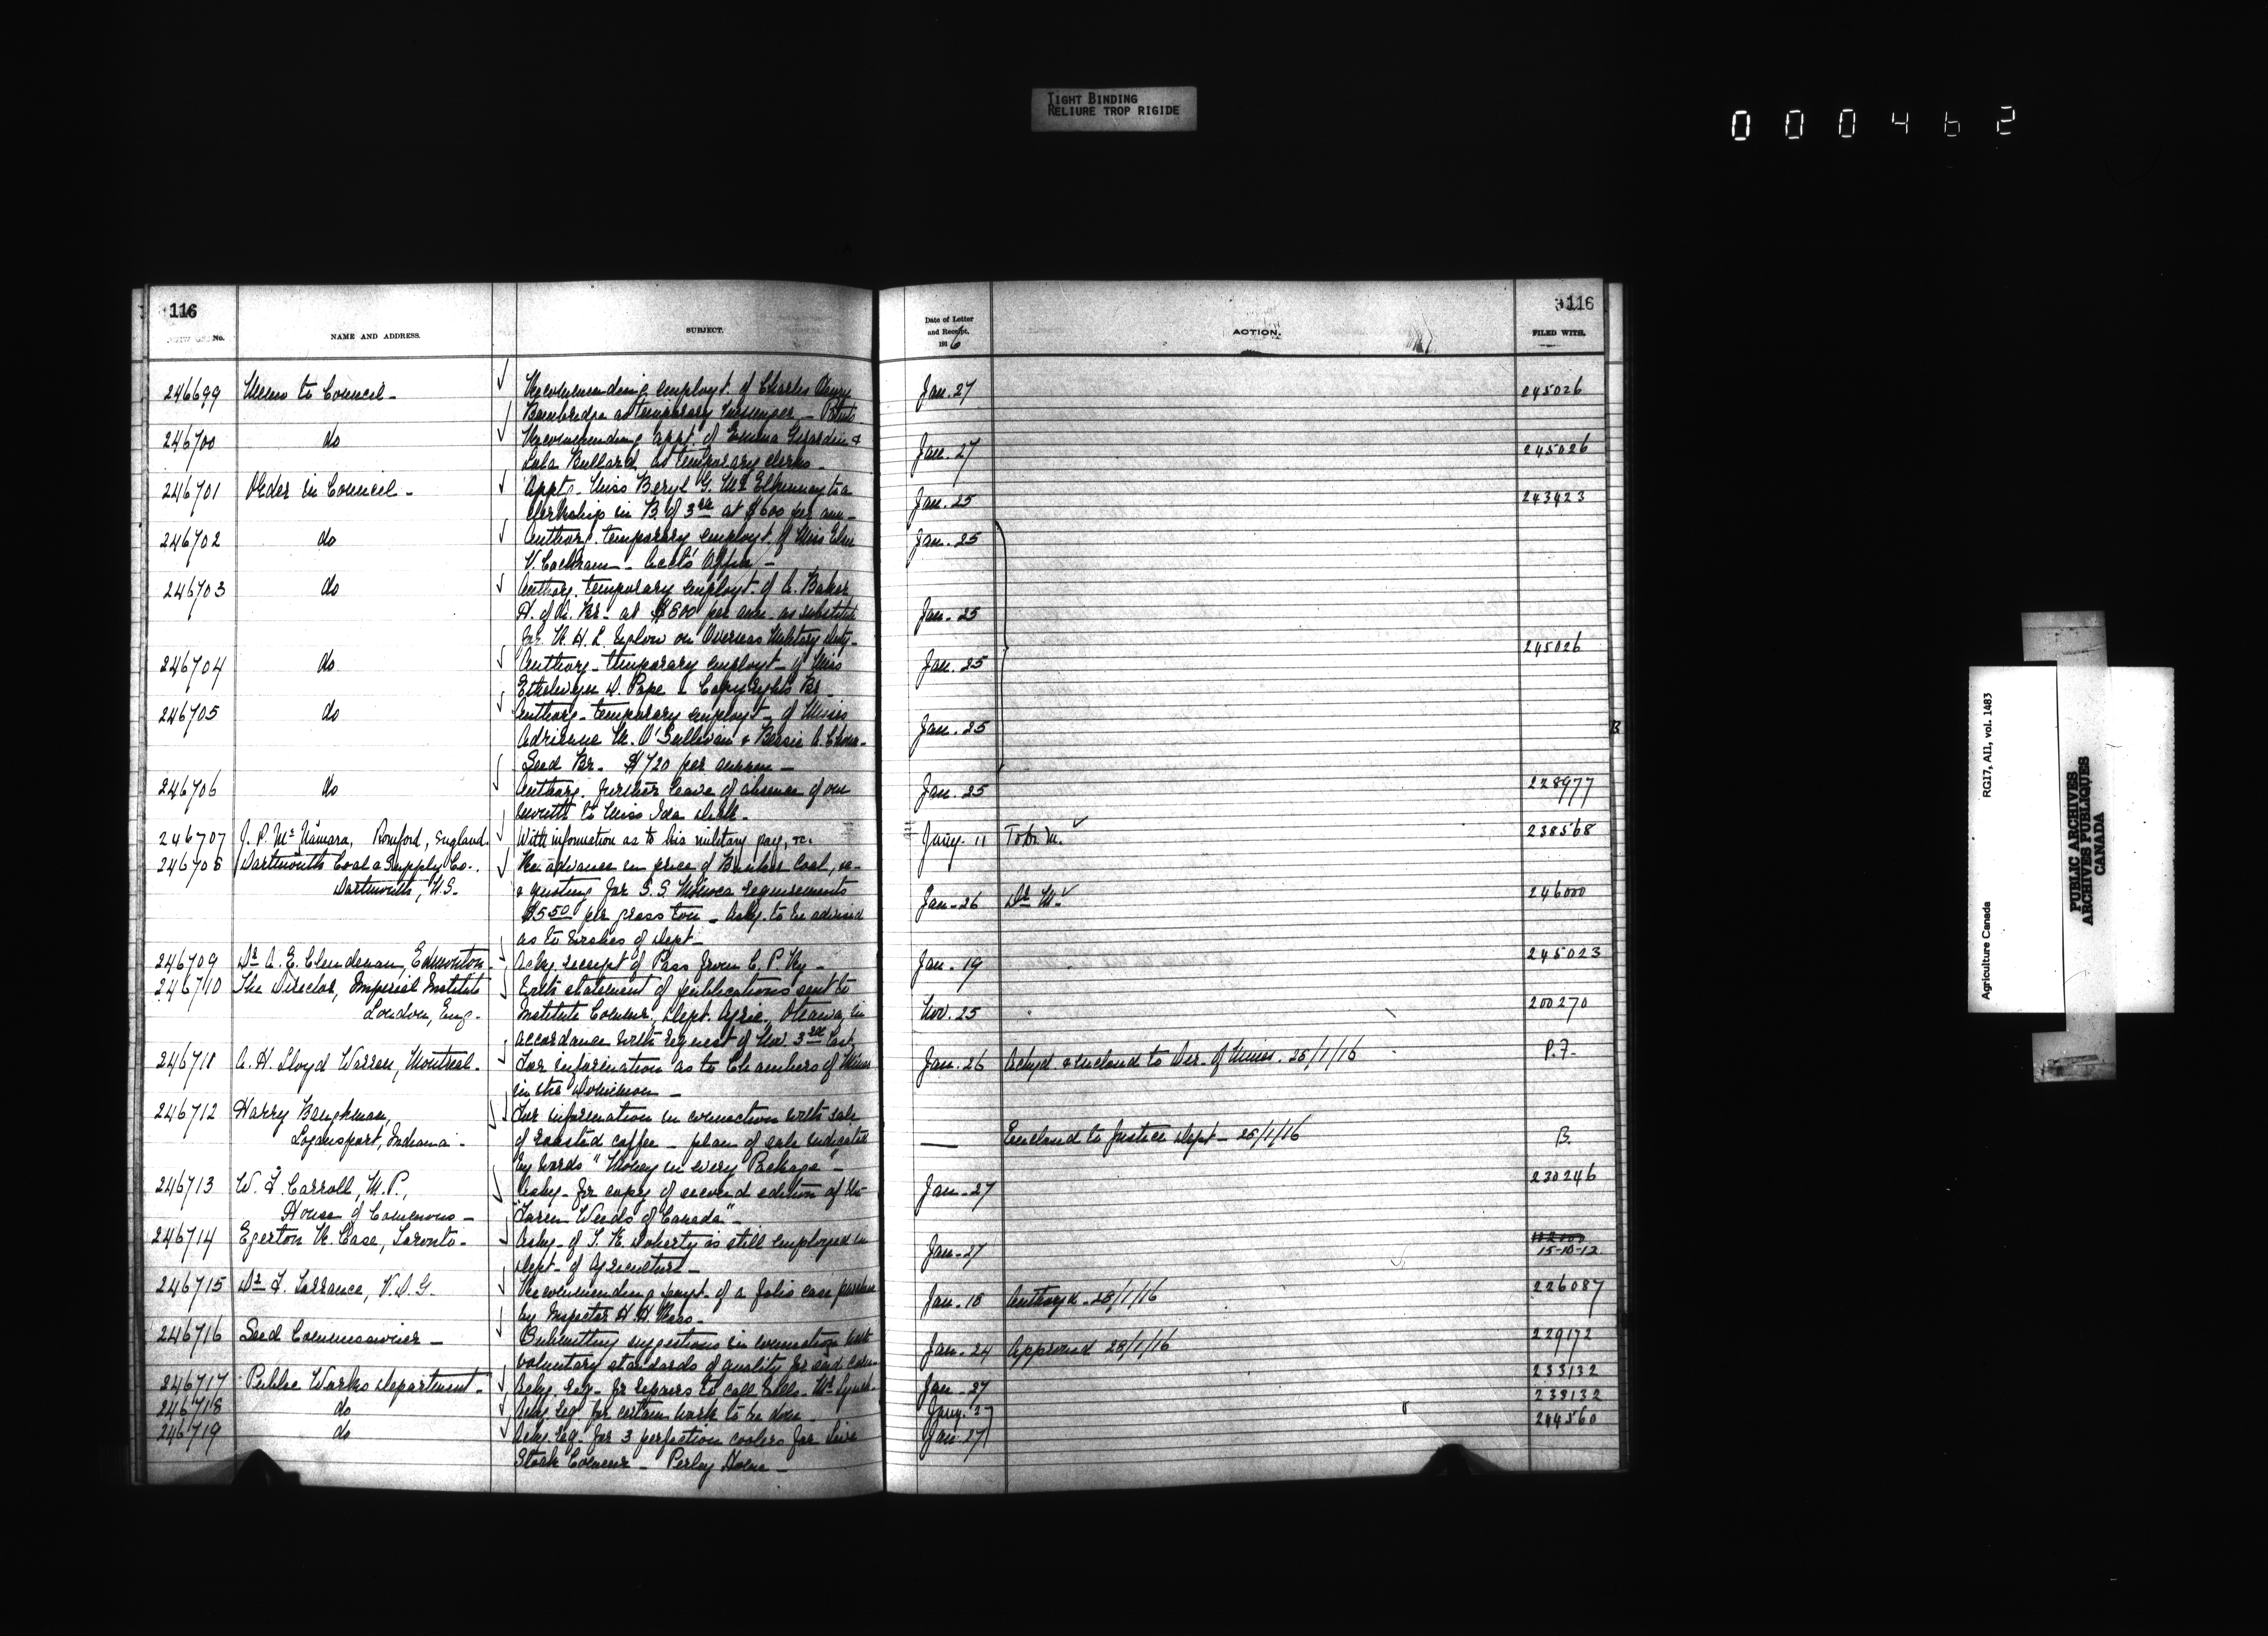 TIGHT BINDING
RELIURE TROP RIGIDE
000462
116
No.
NAME AND ADDRESS.
SUBJECT.
Date of Letter
and Receipt,
1916
ACTION.
116
FILED WITH.
246699 Memo to Council - Recommending employt. of Charles Henry Jan. 27 245026
Bainbridge as temporary messenger - Patents
246700 do Recommending appt. of Emma Girardin & Jan. 27 245026
Lula Bullard as temporary clerks -
246701 Order in Council - Appt. Miss Beryl G. McElhinney to a Jan. 25 243423
clerkship in B. of 3rd at $600 per ann -
246702 do Authorg. temporary employt. of Miss Elsie Jan. 25
V. Cochrane - Acct's Office -
246703 do Authorg. temporary employt. of A. Baker
H. of A. Br. at $600 per ann. as substitute Jan. 25
for on Overseas Military duty -
246704 do Authorg - temporary employt - of Miss Jan. 25 245026
Ethelwyn D. Pope - Copyrights Br -
246705 do Authorg - temporary employt - of Misses
Adrienne M. O'Sullivan & Bessie A. Jan. 25
Seed Br. $720 per annum -
246706 do Authorg. further leave of absence of one Jan. 25 228977
month to Miss Ida
246707 J. P. McNamara, Romford, England. With information as to his military pay, &c. Jany. 11 To Dr. M. 238568
246708 Dartmouth Coal & Supply Co. Re advance in price of Bunker Coal, &
Dartmouth, N.S. - & quoting for S.S. requirements Jan - 26 Dr M. 246000
$5.50 per gross ton - Asks. to be advised
as to wishes of Dept -
246709 Dr A. E. Clendenan, Edmonton - Ackg receipt of Pass from C. P. Ry - Jan. 19 245023
246710 The Director, Imperial Institute With statement of publications sent to
London, Eng. - Institute Commr, Dept. Agric. Ottawa, in Nov. 25 200270
accordance with request of Nov. 3rd last
246711 A. H. Lloyd Warren, Montreal - For information as to Chambers of Mines Jan. 26 Ackgd & enclosed to Dir. of Mines. 28/1/16 P.F.
in the Dominion -
246712 Harry Baughman, For information in connection with sale
Logansport, Indiana - of roasted coffee - plan of sale indicated — Enclosed to Justice Dept - 28/1/16 B.
by words "Money in every Package" -
246713 W. F. Carroll, M.P., Askg - for copy of second edition of the Jan - 27 230246
House of Commons - "Farm Weeds of Canada" -
246714 Egerton R. Case, Toronto - Askg - if T. K. Doherty is still employed in Jan - 27 15-10-12
Dept - of Agriculture -
246715 Dr F. Torrance, V.D.G. Recommending paymt. of a folio case purchase Jan. 18 Authorzd. 28/1/16 226087
by Inspector H. H. Ross -
246716 Seed Commissioner - Submitting suggestions in connection with Jan - 24 Approved 28/1/16 229172
voluntary standards of quality for seed corn -
246717 Public Works Department - Ackg. req - for repairs to call bells - Mr Lynch - Jan - 27 233132
246718 do Ackg. req for certain work to be done - Jany. 27 238132
246719 do Ackg. req. for 3 perfection coolers for Live Jan. 27 244560
Stock Commr - Perley Home -
Agriculture Canada RG17, AII, vol. 1483
PUBLIC ARCHIVES
ARCHIVES PUBLIQUES
CANADA